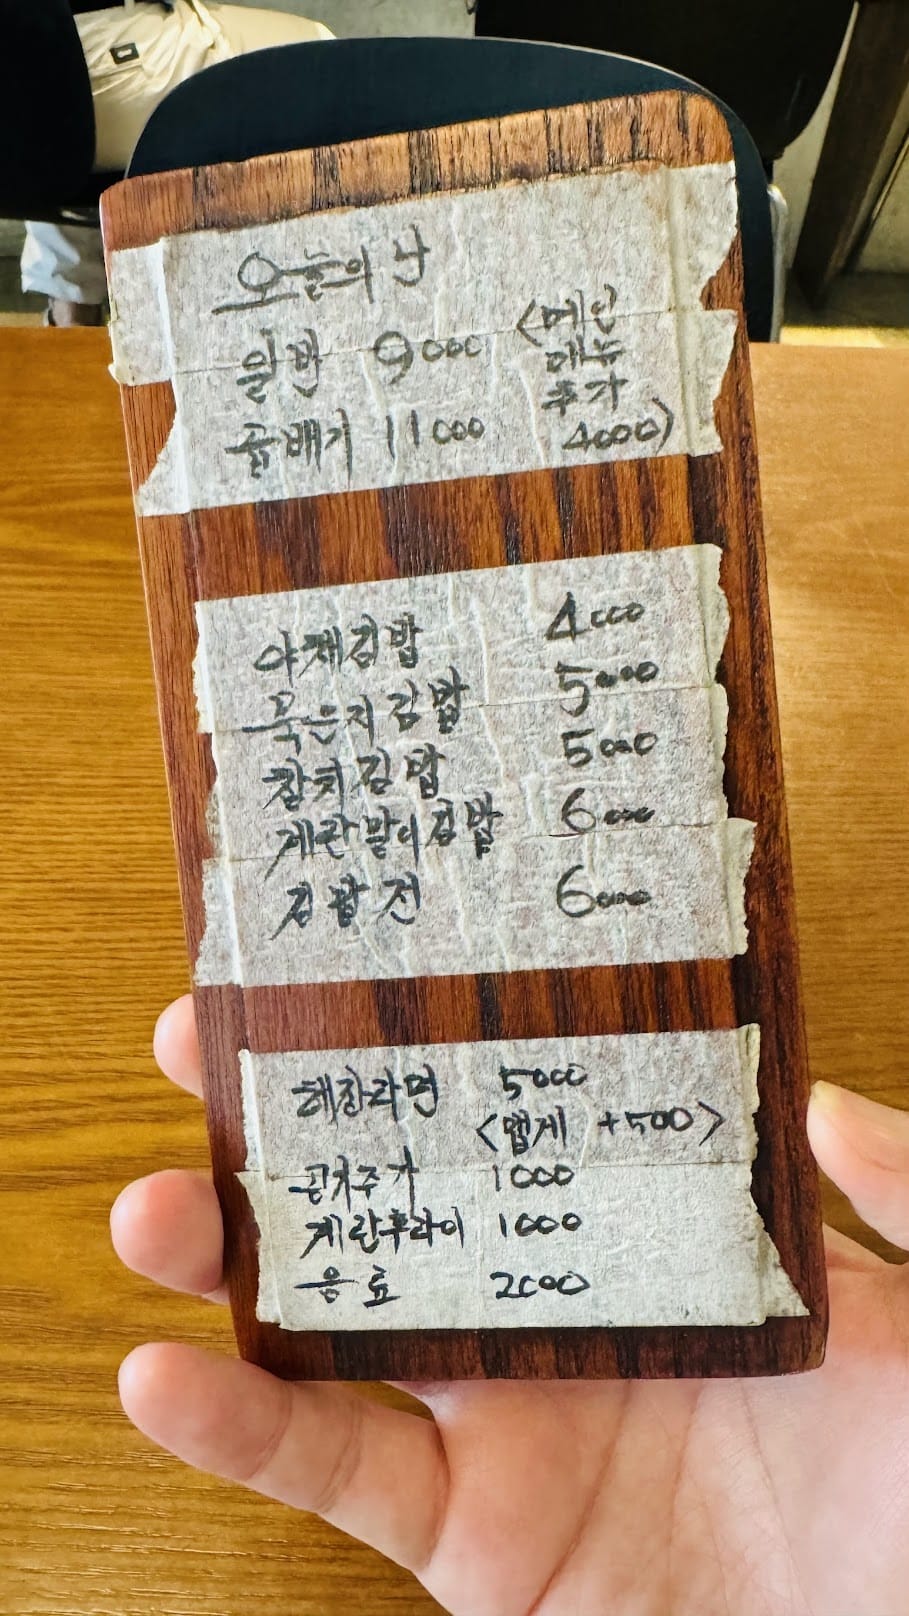 오늘의 난
일반 9000 <메인
메뉴
추가
곱배기 11000 4000)
야채김밥 4000
묵은지김밥 5000
참치김밥 5000
계란말이김밥 6000
김밥전 6000
해장라면 5000
<맵게 +500>
공기추가 1000
계란후라이 1000
음료 2000